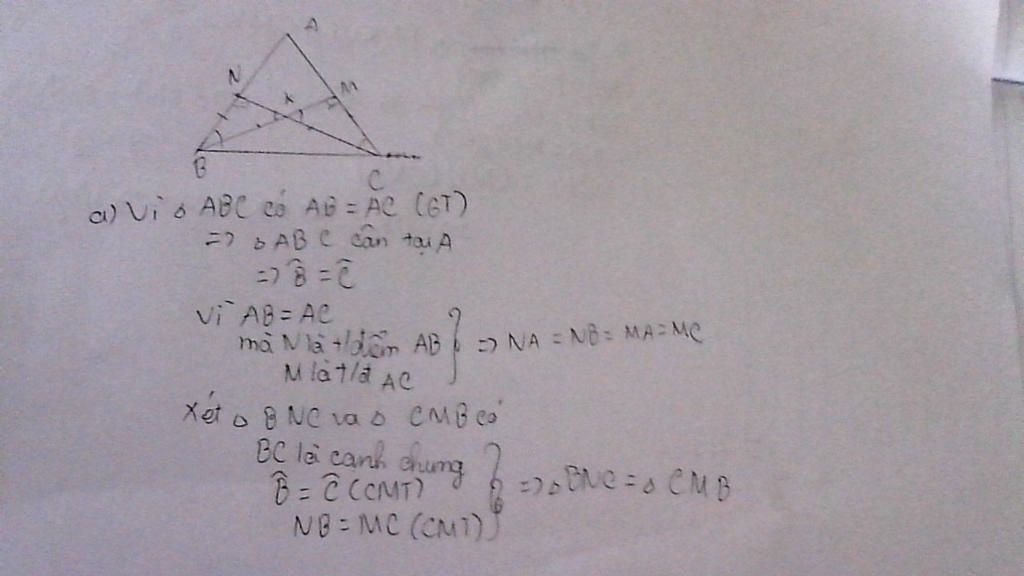 A
N
K
M
B
C
a) Vì △ ABC có AB = AC (GT)
=> △ ABC cân tại A
=> B̂ = Ĉ
Vì AB = AC
mà N là t/điểm AB
M là t/đ AC
=> NA = NB = MA = MC
Xét △ BNC và △ CMB có
BC là cạnh chung
B̂ = Ĉ (CMT)
NB = MC (CMT)
=> △ BNC = △ CMB